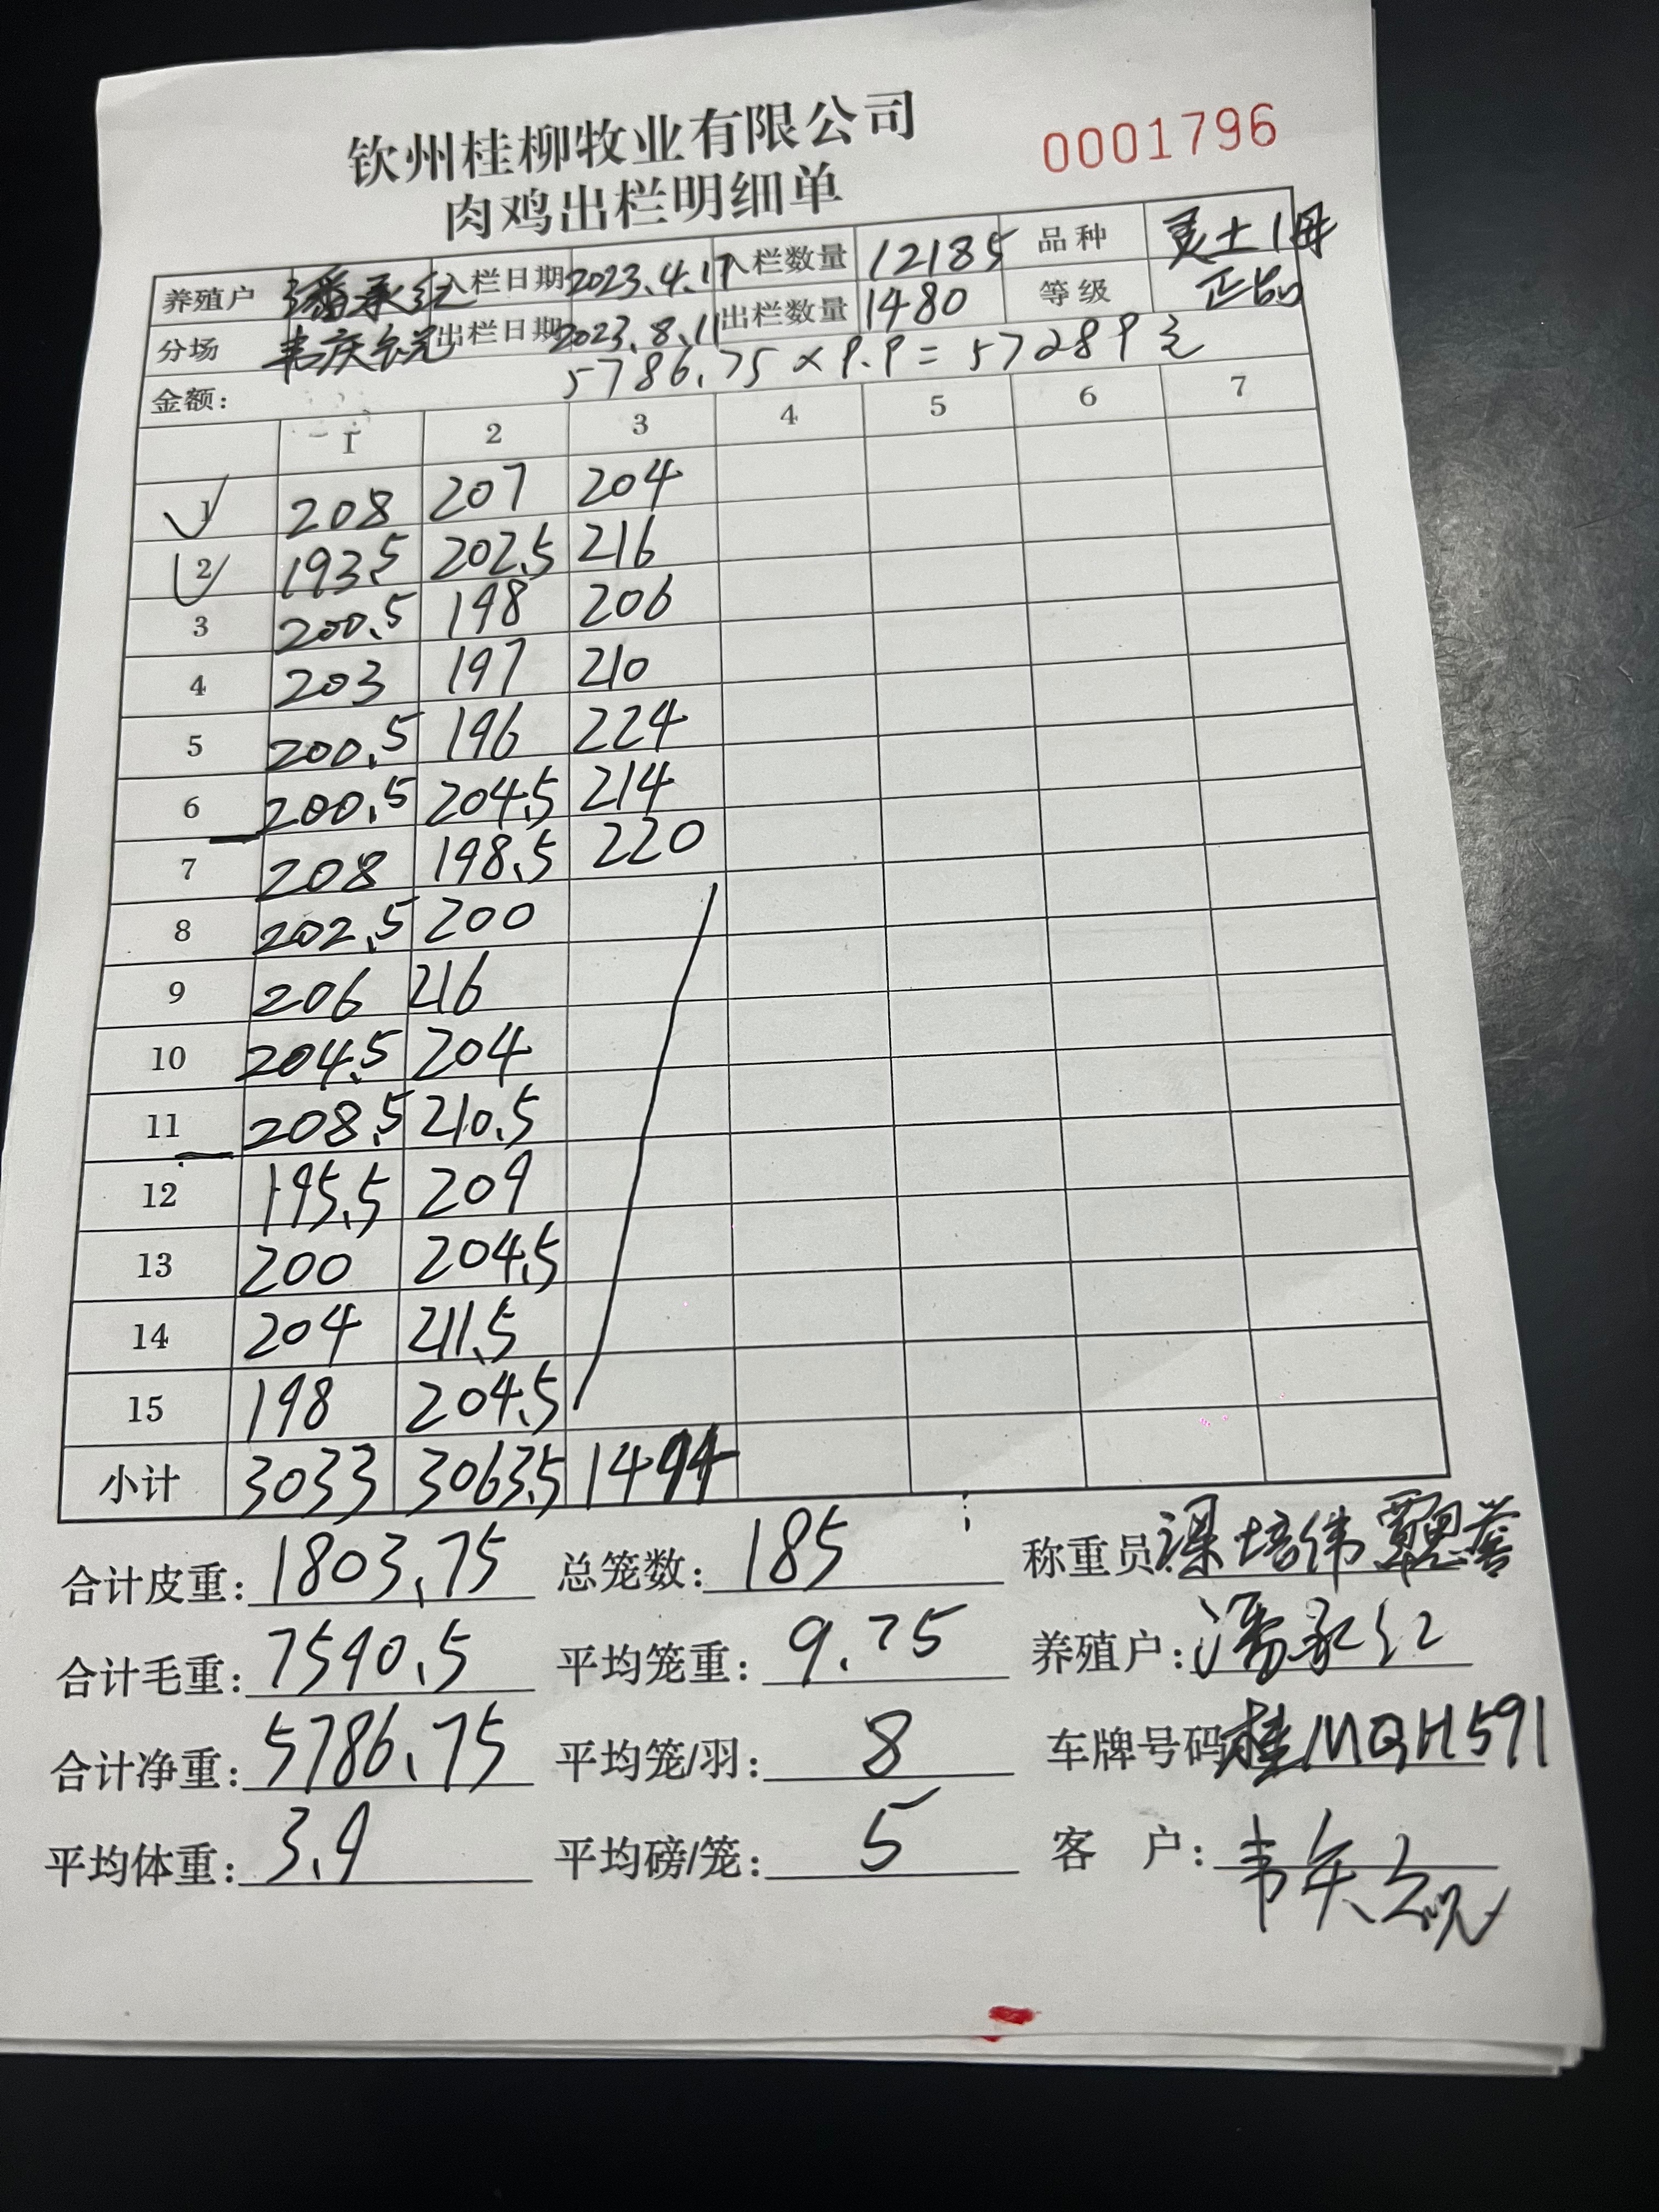 钦州桂柳牧业有限公司
0001796
肉鸡出栏明细单
养殖户 潘承红 入栏日期 2023.4.17 入栏数量 12185 品种 灵土1母
分场 韦庆 出栏日期 2023.8.11 出栏数量 1480 等级 正品
金额: 5786.75×9.9=57289元
1 2 3 4 5 6 7
1 208 207 204
2 193.5 202.5 216
3 200.5 198 206
4 203 197 210
5 200.5 196 224
6 200.5 204.5 214
7 208 198.5 220
8 202.5 200
9 206 216
10 204.5 204
11 208.5 210.5
12 195.5 209
13 200 204.5
14 204 211.5
15 198 204.5
小计 3033 3063.5 1494
合计皮重: 1803.75 总笼数: 185 称重员 梁培伟
合计毛重: 7590.5 平均笼重: 9.75 养殖户: 潘承红
合计净重: 5786.75 平均笼/羽: 8 车牌号码 桂MQH591
平均体重: 3.9 平均磅/笼: 5 客户: 韦庆